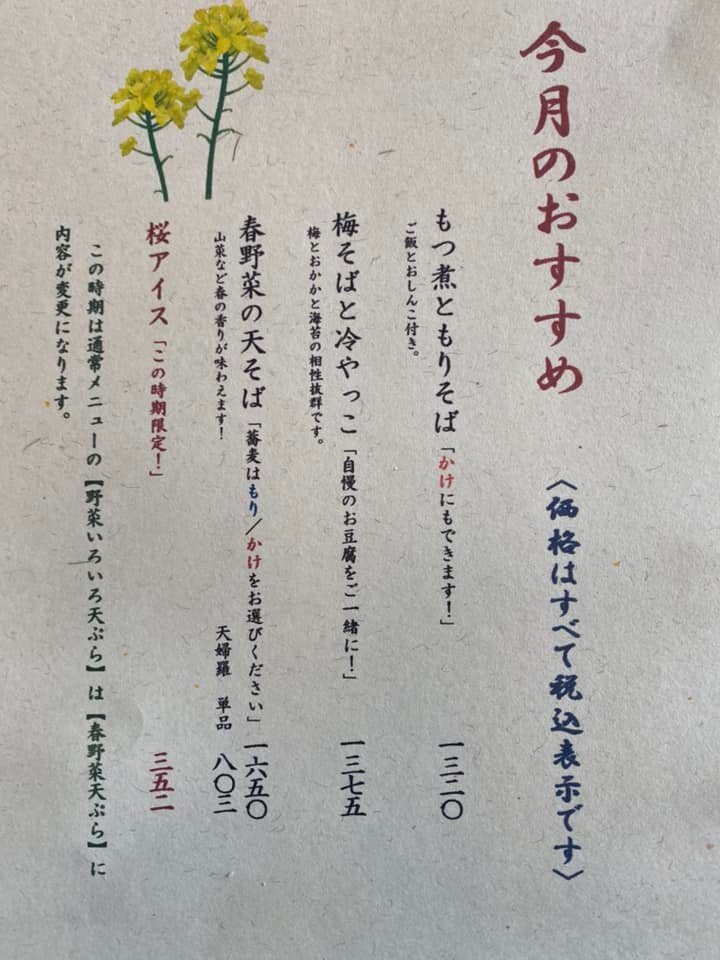 今月のおすすめ
〈価格はすべて税込表示です〉
もつ煮ともりそば「かけにもできます!」 一三二〇
ご飯とおしんこ付き。
梅そばと冷やっこ「自慢のお豆腐をご一緒に!」 一三七五
梅とおかかと海苔の相性抜群です。
春野菜の天そば「蕎麦はもり/かけをお選びください」 一六五〇
山菜など春の香りが味わえます!
天婦羅 単品 八〇三
桜アイス「この時期限定!」 三五二
この時期は通常メニューの【野菜いろいろ天ぷら】は【春野菜天ぷら】に
内容が変更になります。